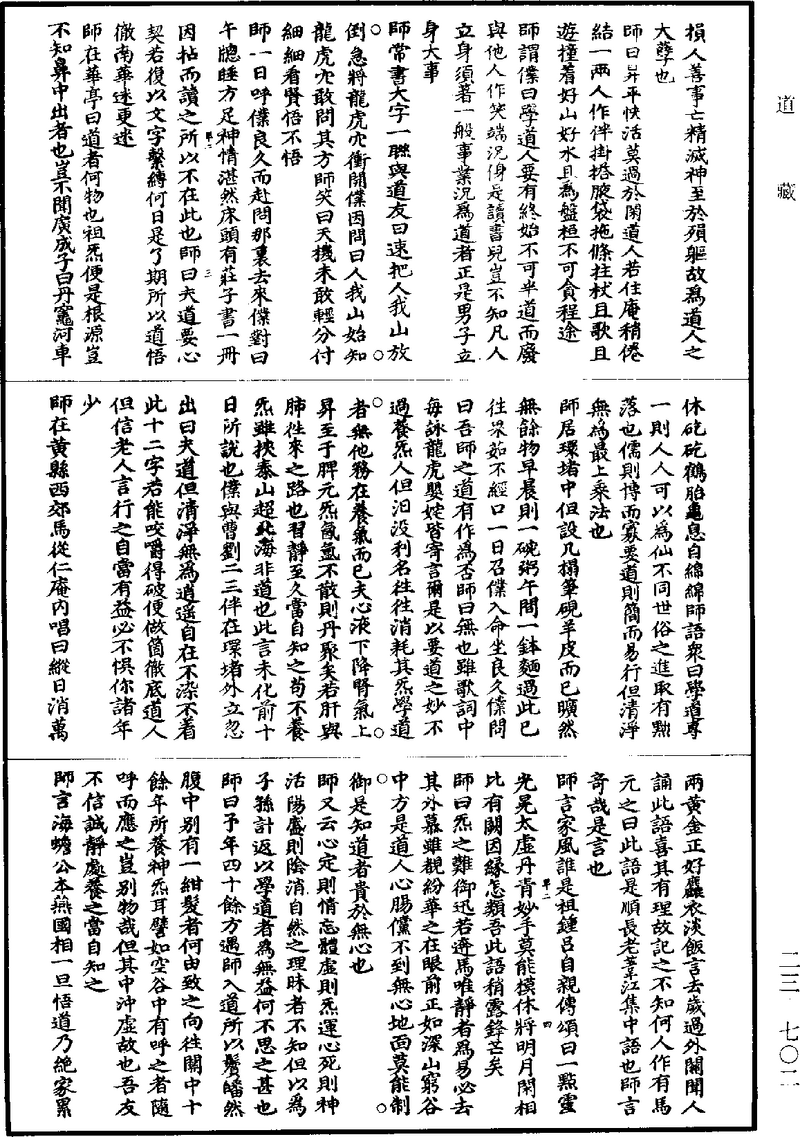 道藏
損人善事亡精滅神至於殞軀故為道人之
大孽也
師曰昇平快活莫過於閑道人若住庵稍倦
結一兩人作伴掛搭腋袋拖條拄杖且歌且
遊撞着好山好水且為盤桓不可貪程途
師謂僕曰學道人要有終始不可半道而廢
與他人作笑端況身是讀書兒豈不知凡人
立身須著一般事業況為道者正是男子立
身大事
師常書大字一聯與道友曰速把人我山放
倒急將龍虎穴衝開僕因問曰人我山始知
龍虎穴敢問其方師笑曰天機未敢輕分付
細細看賢悟不悟
師一日呼僕良久而赴問那裏去來僕對曰
午牕睡方足神情湛然床頭有莊子書一冊
因拈而讀之所以不在此也師曰夫道要心
契若復以文字繫縛何日是了期所以道悟
徹南華迷更迷
師在華亭曰道者何物也祖炁便是根源豈
不知鼻中出者也豈不聞廣成子曰丹竈河車
休矻矻鶴胎龜息自綿綿師語眾曰學道專
一則人人可以為仙不同世俗之進取有黜
落也儒則博而寡要道則簡而易行但清淨
無為最上乘法也
師居環堵中但設几榻筆硯羊皮而已曠然
無餘物早晨則一碗粥午間一鉢麵過此已
往果茹不經口一日召僕入命坐良久僕問
曰吾師之道有作為否師曰無也雖歌詞中
每詠龍虎嬰姹皆寄言爾是以要道之妙不
過養炁人但汨沒利名往往消耗其炁學道
者無他務在養氣而已夫心液下降腎氣上
昇至于脾元炁氤氳不散則丹聚矣若肝與
肺往來之路也習靜至久當自知之苟不養
炁雖挾泰山超北海非道也此言未化前十
日所說也僕與曹劉二三伴在環堵外立忽
出曰夫道但清淨無為逍遙自在不染不着
此十二字若能咬嚼得破便做箇徹底道人
但信老人言行之自當有益必不悞你諸年
少
師在黃縣西郊馬從仁庵內唱曰縱日消萬
兩黃金正好麤衣淡飯言去歲過外闤聞人
誦此語喜其有理故記之不知何人作有馬
元之曰此語是順長老菩江集中語也師言
奇哉是言也
師言家風誰是祖鍾呂自親傳頌曰一點靈
光晃太虛丹青妙手莫能摸休將明月閑相
比有闕因緣怎類吾此語稍露鋒芒矣
師曰炁之難御迅若奔馬唯靜者為易必去
其外慕雖覩紛華之在眼前正如深山窮谷
中方是道人心腸儻不到無心地面莫能制
御是知道者貴於無心也
師又云心定則情忘體虛則炁運心死則神
活陽盛則陰消自然之理昧者不知但以為
子孫計返以學道者為無益何不思之甚也
師曰予年四十餘方遇師入道所以鬢皤然
腹中別有一紺髮者何由致之向往關中十
餘年所養神炁耳譬如空谷中有呼之者隨
呼而應之豈別物哉但其中沖虛故也吾友
不信誠靜處養之當自知之
師言海蟾公本燕國相一旦悟道乃絕家累
二三 七〇二